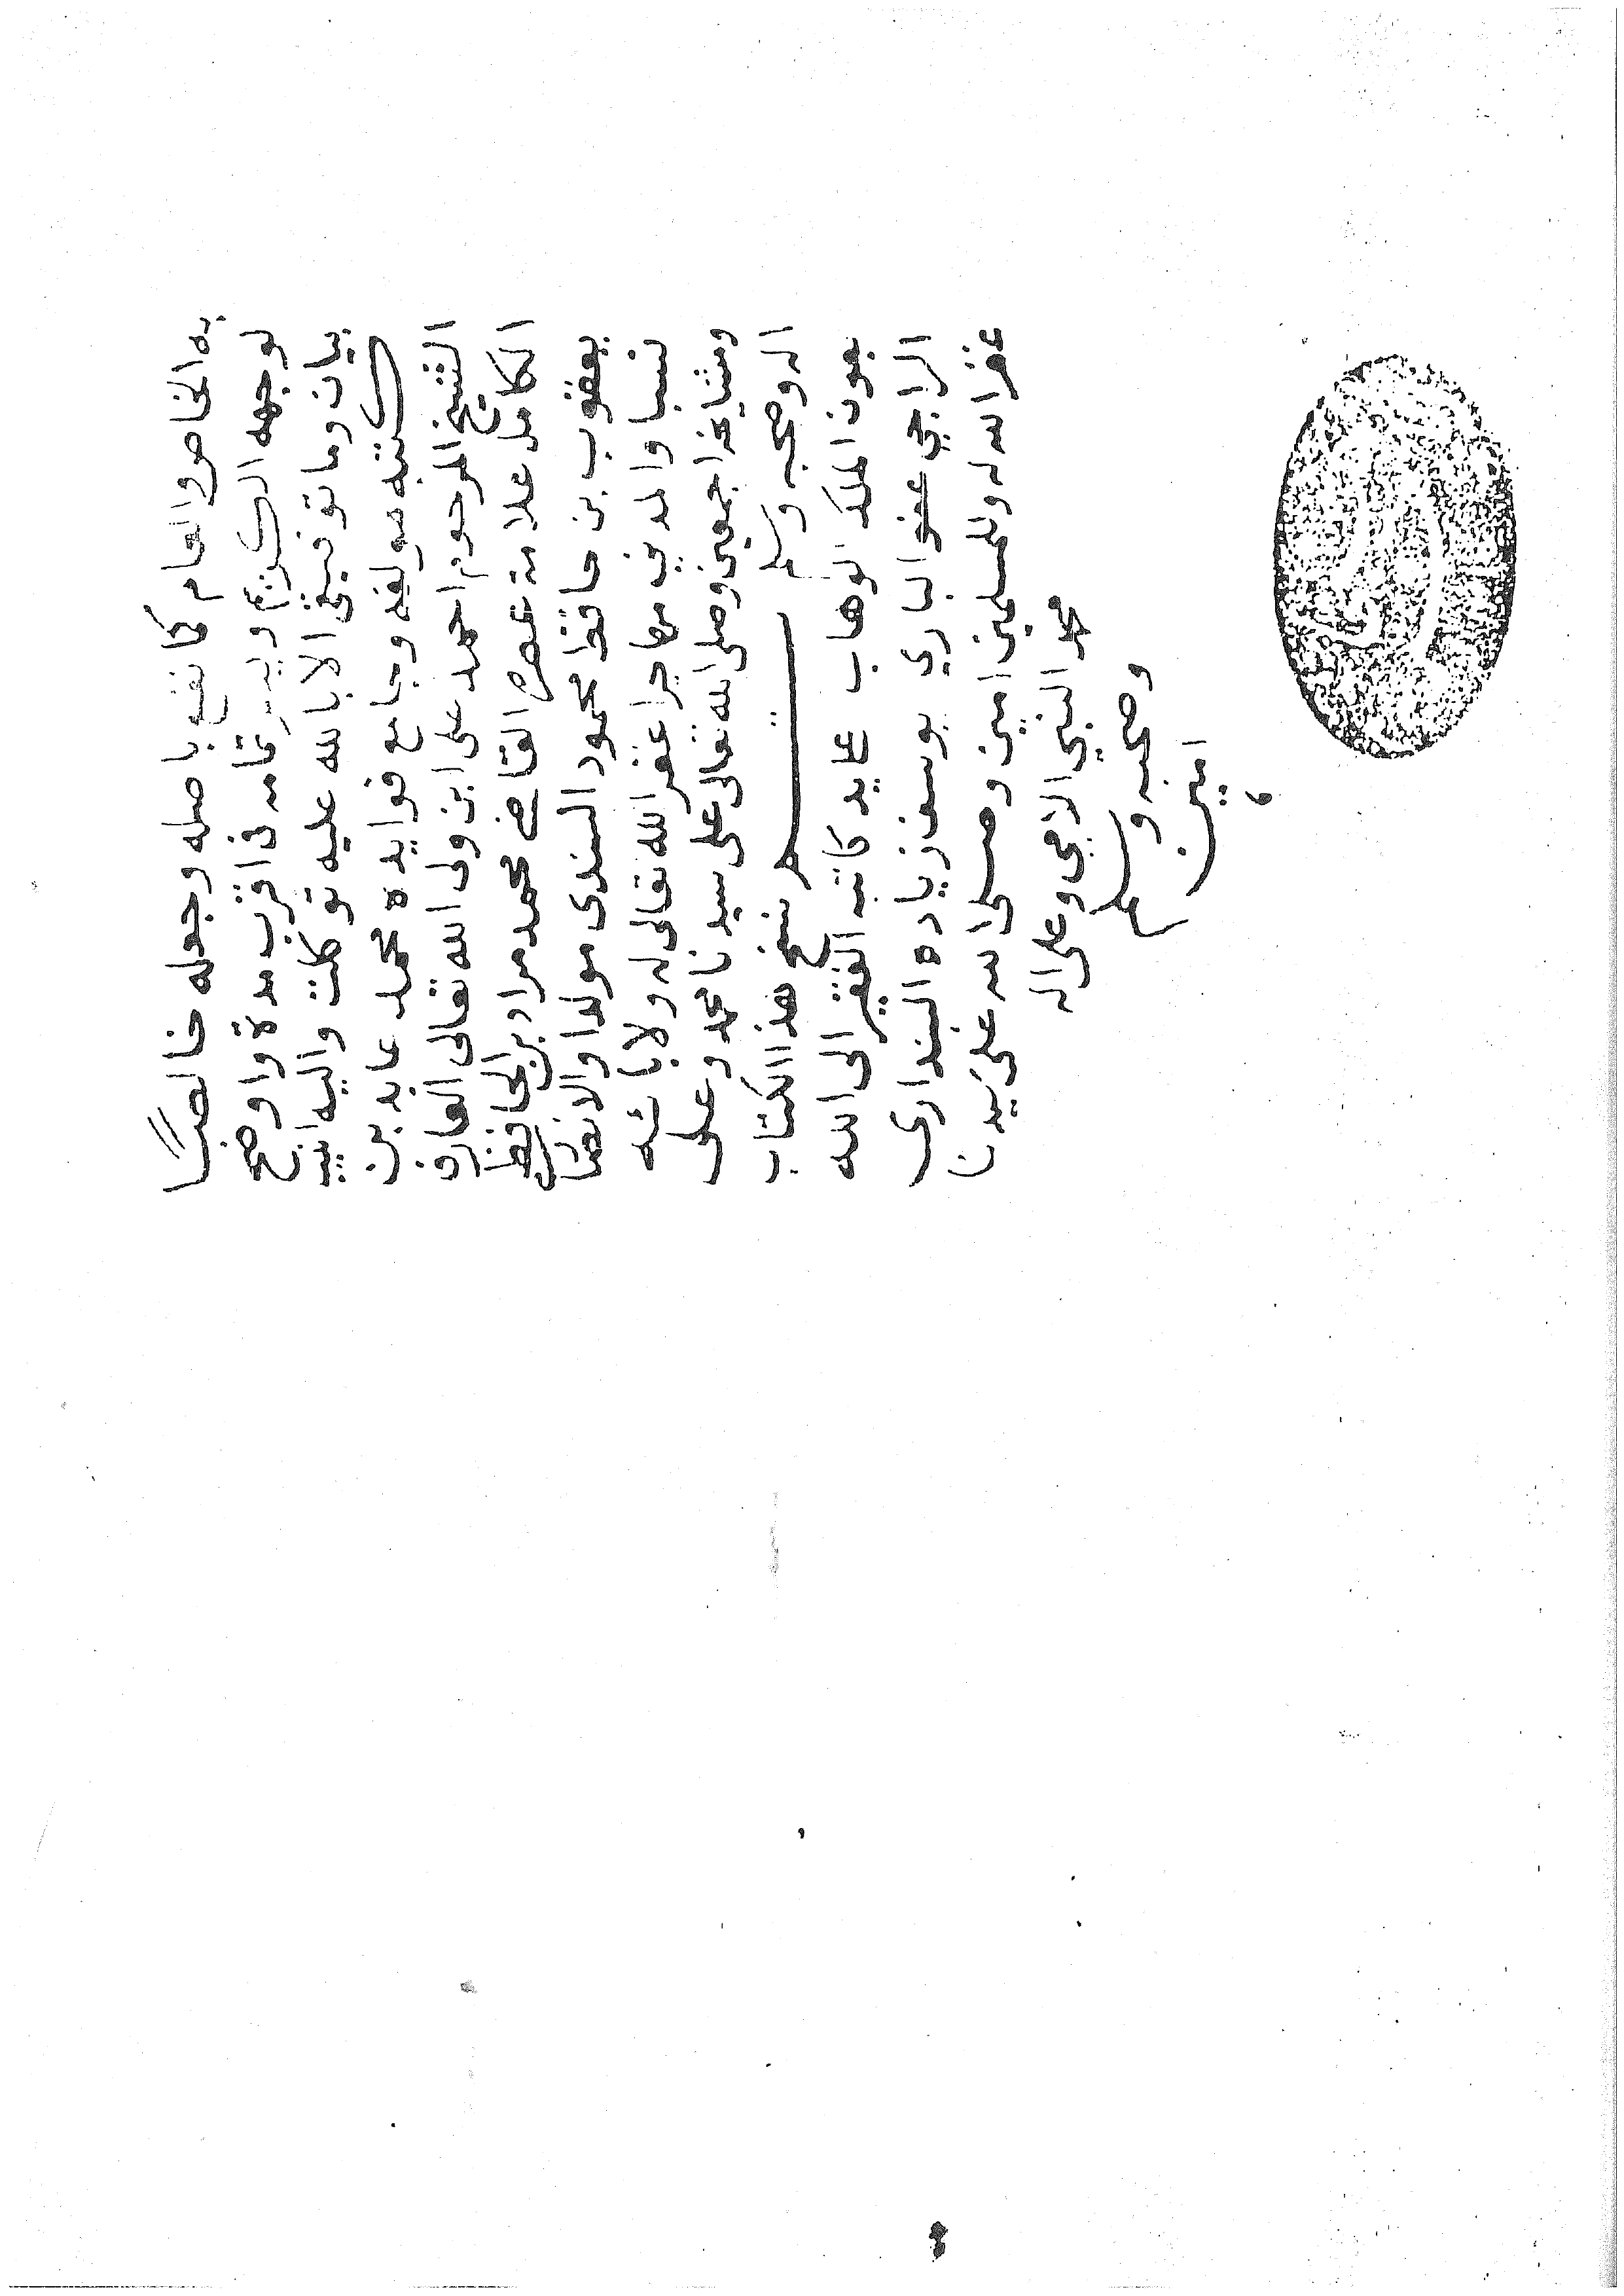 به الخاص والعام كما نفع باصله وجعله خالصًا
لوجهه الكريم ويسر تمامه فى اقرب مدة واوضح
بيان وما توفيقى الا بالله عليه توكلت واليه انيب
كتبه مولفه وجامع فوايده محمد عابد بن
الشيخ المرحوم احمد على ابن ولى الله تعالى العارف
الكامل علامة عصره القاضى محمد مراد بن الحافظ
يعقوب بن حافظ محمود السندى مولدا والانصارى
نسبا والمدني مهاجرا غفر الله تعالى له ولابائه
ومشايخه اجمعين وصلى الله تعالى على سيدنا محمد وعلى
اله وصحبه وسلم تم نسخ هذا الكتاب
بعون الملك الوهاب على يد كاتبه الفقير الى الله
الراجي عفو الباري يوسف زياده البندارى
غفر الله له وللمسلمين امين وصلى الله على سيدنا
محمد النبي الامي وعلى اله
وصحبه وسلم
امين